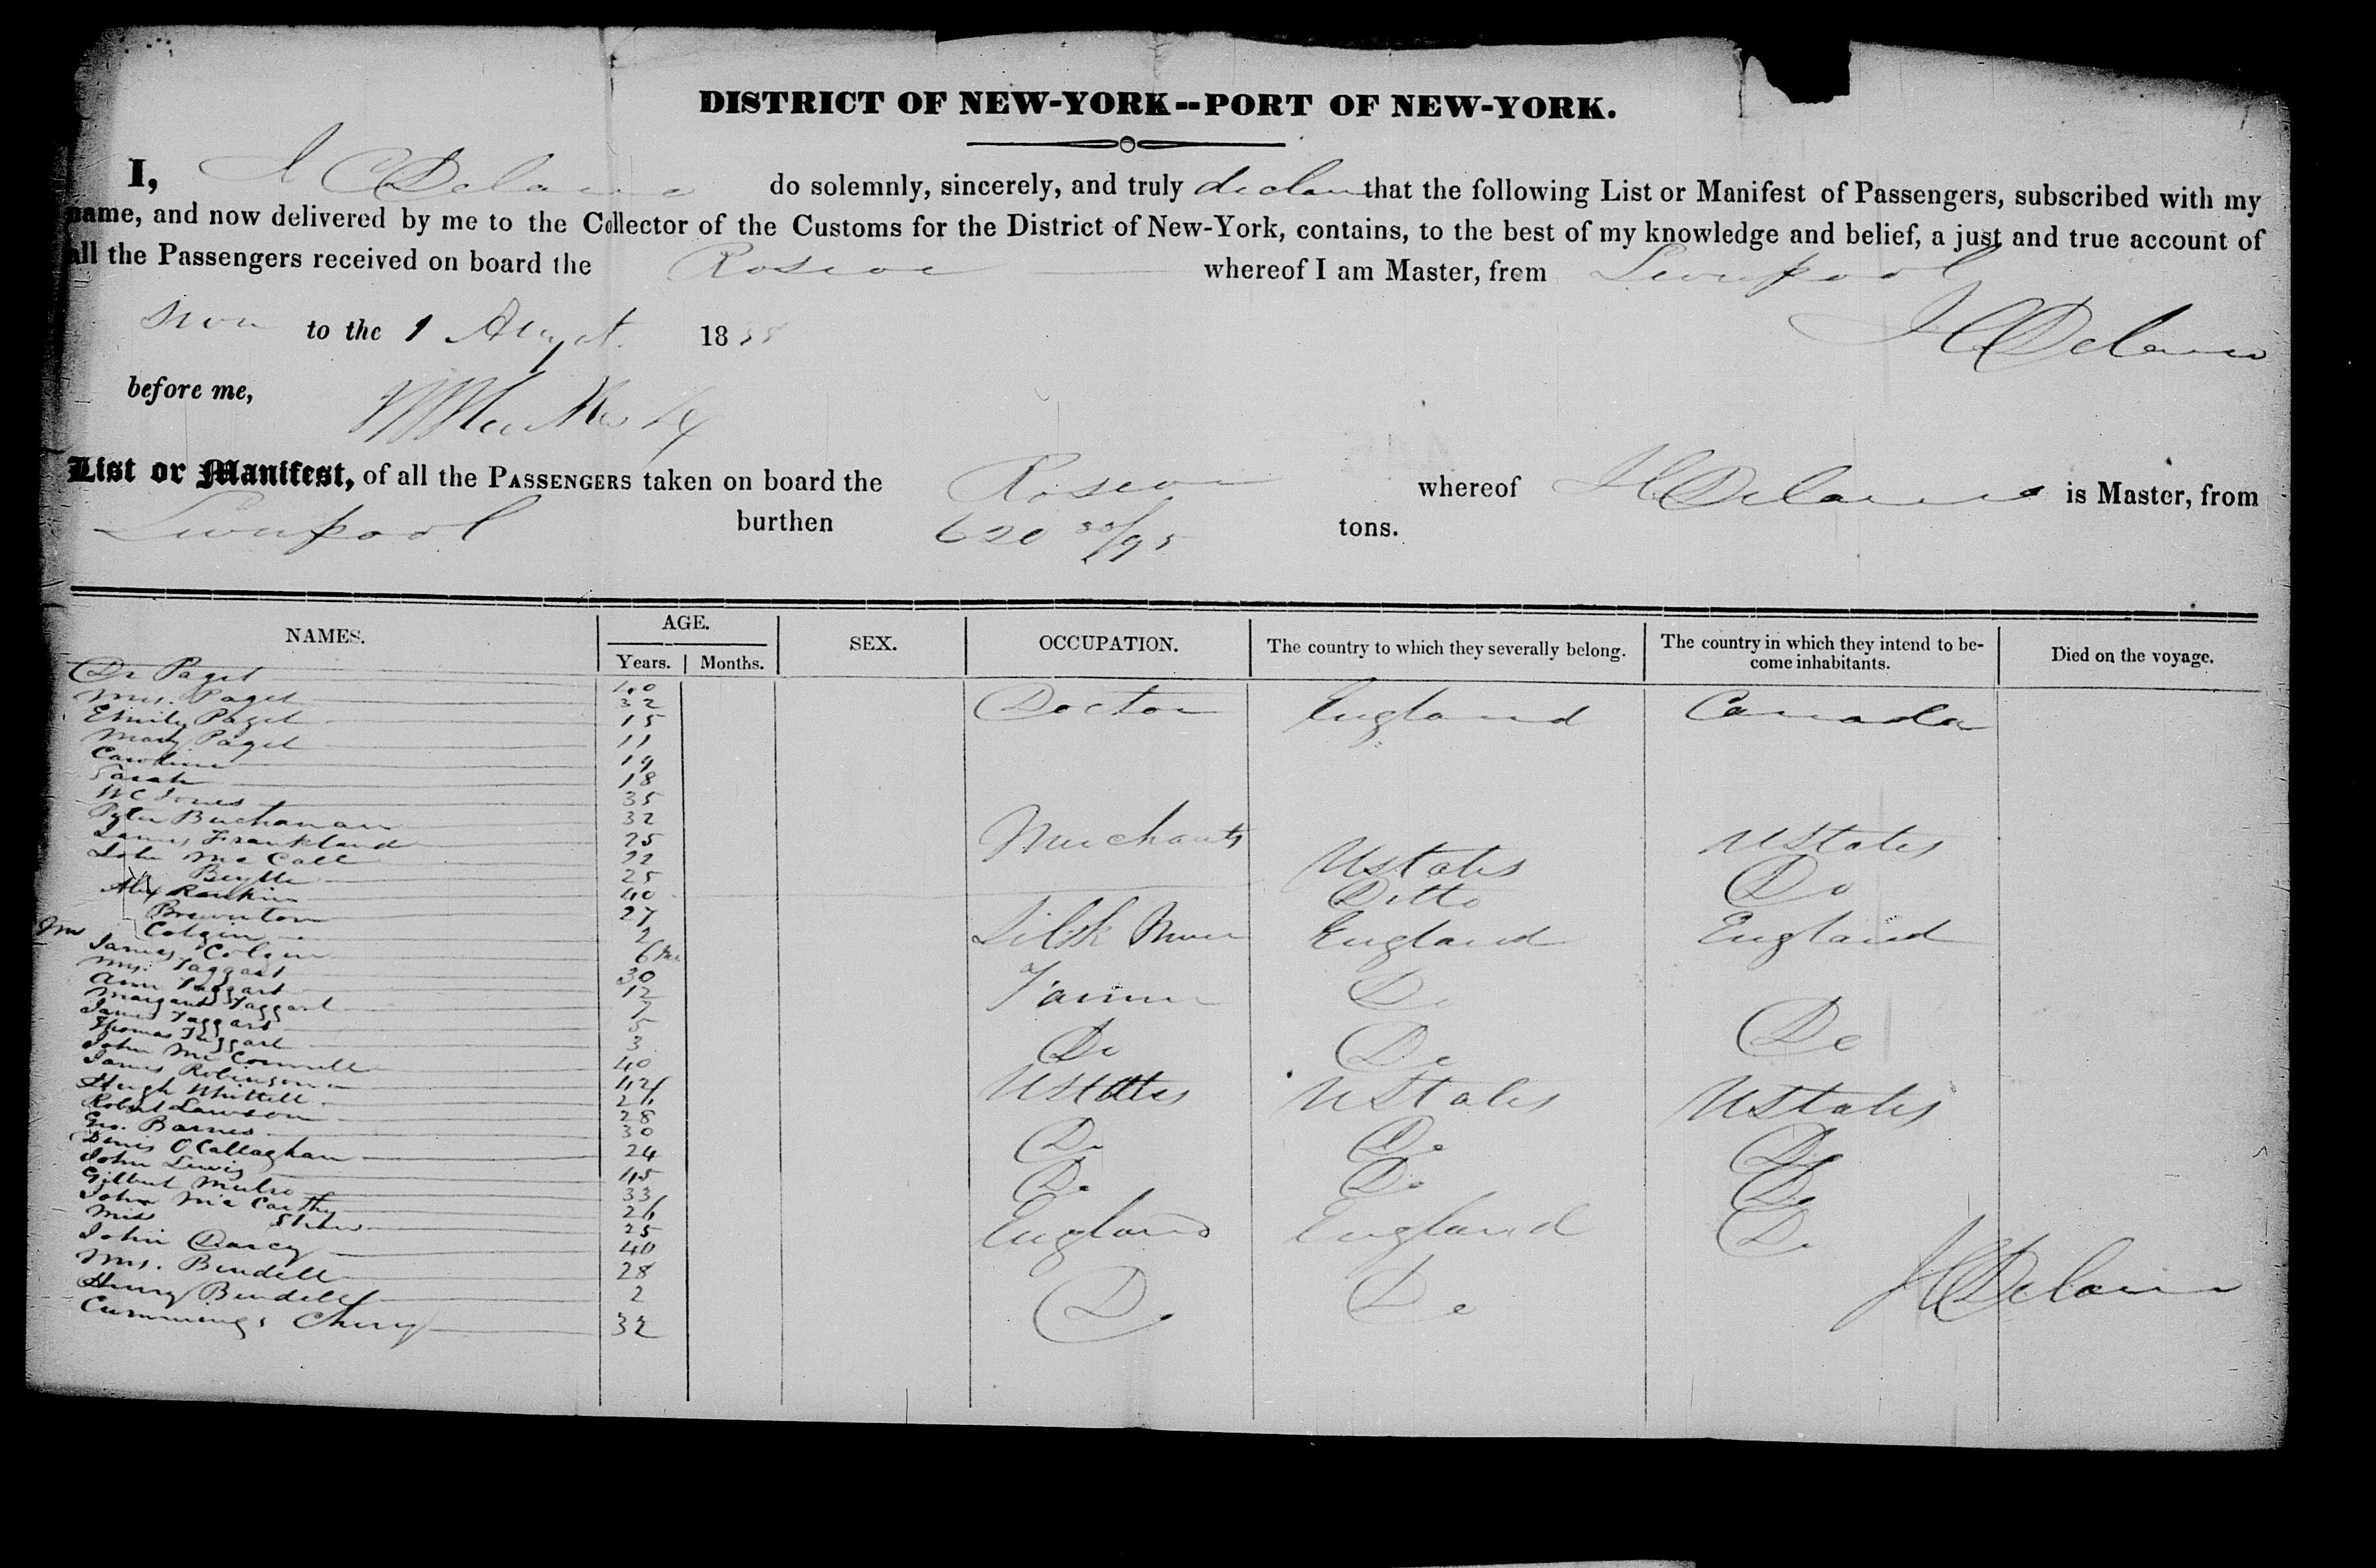 DISTRICT OF NEW-YORK--PORT OF NEW-YORK.
I, J C Delano do solemnly, sincerely, and truly declare that the following List or Manifest of Passengers, subscribed with my
name, and now delivered by me to the Collector of the Customs for the District of New-York, contains, to the best of my knowledge and belief, a just and true account of
all the Passengers received on board the Roscoe whereof I am Master, from Liverpool
to the 1 August 1838
J C Delano
before me,
List or Manifest, of all the PASSENGERS taken on board the Roscoe whereof J C Delano is Master, from
Liverpool burthen 620 tons.
NAMES. AGE. Years. Months. SEX. OCCUPATION. The country to which they severally belong. The country in which they intend to become inhabitants. Died on the voyage.
Dr Paget 40 Doctor England Canada
Mrs. Paget 32
Emily Paget 15
Mary Paget 11
Caroline 19
Sarah 18
W C Jones 35
Peter Buchanan 32 Merchants U States U States
James Frankland 25
John Mc Call 22
25 Ditto Do
Alex Rankin 40
Brewerton 27 England England
Colgin 2
James Colgin 6
Mrs. Taggart 30 Farmer Do
Ann Taggart 12
Margaret Taggart 7
James Taggart 5 Do
Thomas Taggart 3 Do Do
John Mc Connell 40
James Robinson 42 U States U States U States
Hugh Whittell 26
Robert Lawson 28
Geo. Barnes 30 Do Do Do
Denis O Callagham 24
John Lewis 45 Do Do Do
Gilbert 33
John Mc Carthy 26 England England Do
Miss Shaw 25
John Darcy 40
Mrs. Bendell 28
Henry Bendell 2 Do Do
Cummings Cherry 32
J C Delano